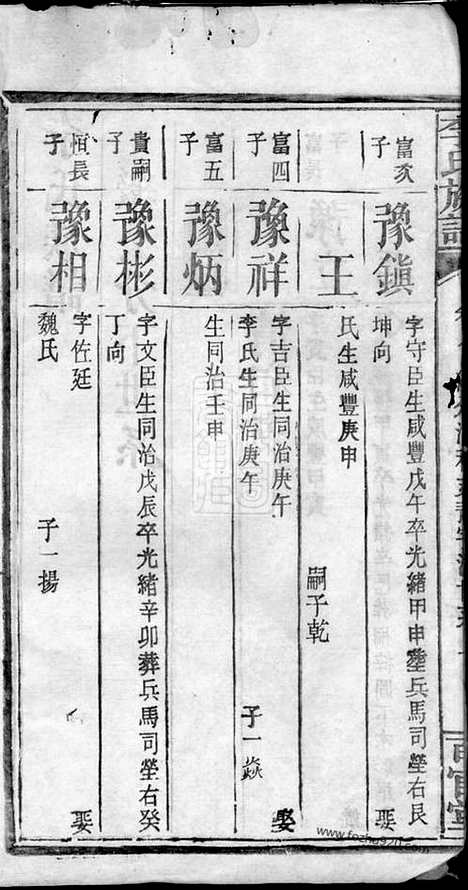 李氏族譜
百官堂
富次子
豫鎮
字守臣生咸豐戊午卒光緒甲申塟兵馬司塋右艮
坤向
娶
王
氏生咸豐庚申
嗣子乾
富四子
豫祥
字吉臣生同治庚午
娶
李氏生同治庚午
子一
富五子
豫炳
生同治壬申
貴嗣子
豫彬
字文臣生同治戊辰卒光緒辛卯葬兵馬司塋右癸
丁向
恒長子
豫相
字佐廷
娶
魏氏
子一揚
www.fozhu920.com